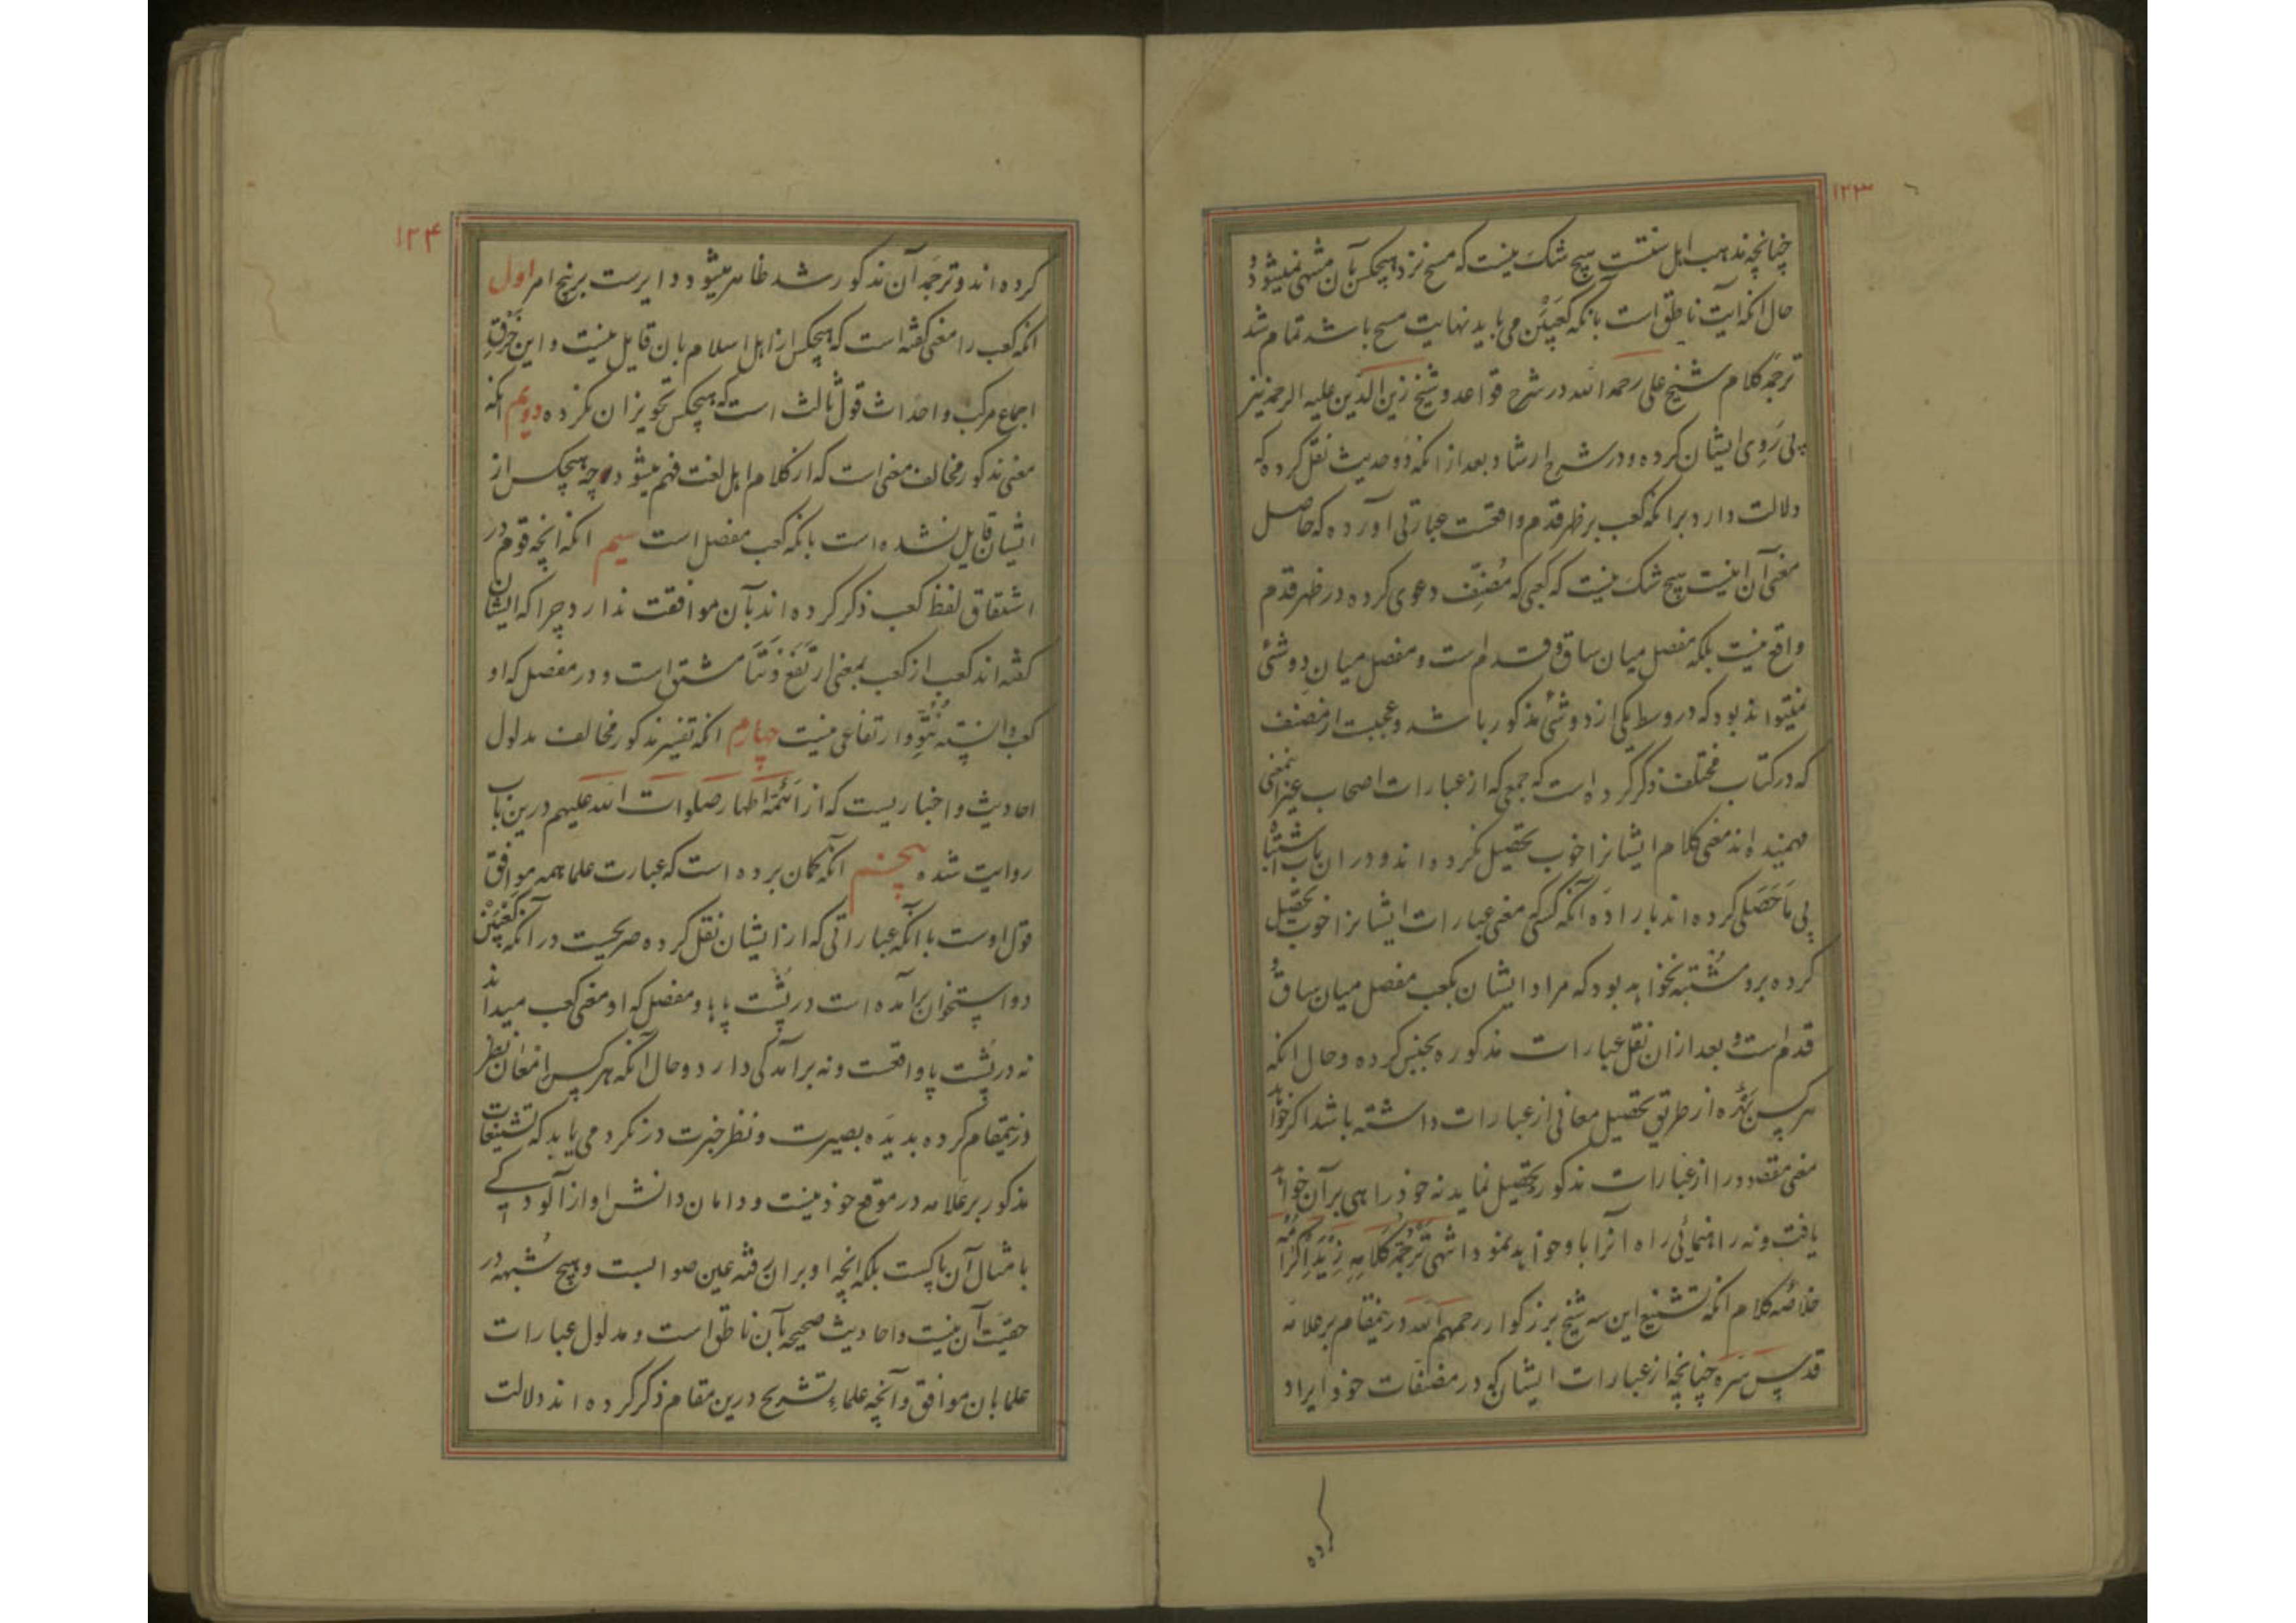 ۱۲۳
چنانچه مذهب اهل سنتست هیچ شک نیست که مسح نزد هیچکس بآن منتهی نمیشود و
حال آنکه آیت ناطق است بآنکه کعبین می باید نهایت مسح باشد تمام شد
ترجمه کلام شیخ علی رحمه الله در شرح قواعد و شیخ زین الدین علیه الرحمه نیز
پی روی ایشان کرده و در شرح ارشاد بعد از آنکه دو حدیث نقل کرده که
دلالت دارد بر آنکه کعب بر ظهر قدم واقعست عبارتی آورده که حاصل
معنی آن اینست هیچ شک نیست که کعبی که مصنف دعوی کرده در ظهر قدم
واقع نیست بلکه مفصل میان ساق و قدم است و مفصل میان دو شئی
نمیتواند بود که در وسط یکی از دو شئی مذکور باشد و عجبست از مصنف
که در کتاب مختلف ذکر کرده است که جمعی که از عبارات اصحاب غیر اینمعنی
فهمیده اند معنی کلام ایشانرا خوب تحصیل نکرده اند و در ان باب اشتباه
بی ماحصلی کرده اند باراده آنکه کسی معنی عبارات ایشانرا خوب تحصیل
کرده برو مشتبه نخواهد بود که مراد ایشان بکعب مفصل میان ساق و
قدم است و بعد ازان نقل عبارات مذکوره بجنس کرده و حال آنکه
هر کس بهره از طریق تحصیل معانی از عبارات داشته باشد اگر خواهد
معنی مقصود را از عبارات مذکور تحصیل نماید نه خود راهی برآن خواهد
یافت و نه راهنمائی راه آنرا باو خواهد نمود انتهی ترجمة کلامه زید اکرامه
خلاصه کلام آنکه تشنیع این سه شیخ بزرگوار رحمهم الله درینمقام بر علامه
قدس سره چنانچه از عبارات ایشان که در مصنفات خود ایراد
کرده
۱۲۴
کرده اند و ترجمه آن مذکور شد ظاهر میشود دایرست بر پنج امر اول
آنکه کعب را معنی گفته است که هیچکس از اهل اسلام بان قایل نیست و این خرق
اجماع مرکب و احداث قول ثالث است که هیچکس تجویز ان نکرده دویم آنکه
معنی مذکور مخالف معنی است که از کلام اهل لغت فهم میشود چه هیچکس از
ایشان قایل نشده است بآنکه کعب مفصل است سیم آنکه انچه قوم در
اشتقاق لفظ کعب ذکر کرده اند بآن موافقت ندارد چرا که ایشان
گفته اند کعب از کعب بمعنی ارتفع و نتأ مشتق است و در مفصل که او
کعب دانسته نتو و ارتفاعی نیست چهارم آنکه تفسیر مذکور مخالف مدلول
احادیث و اخباریست که از ائمه اطهار صلوات الله علیهم درین باب
روایت شده پنجم آنکه گمان برده است که عبارت علما همه موافق
قول اوست با آنکه عباراتی که از ایشان نقل کرده صریحست در آنکه کعبین
دو استخوان برآمده است در پشت پاها و مفصل که او معنی کعب میداند
نه در پشت پا واقعست و نه برآمدگی دارد و حال آنکه هر کس امعان نظر
درینمقام کرده بدیده بصیرت و نظر خبرت در نگرد می یابد که تشنیعات
مذکور بر علامه در موقع خود نیست و دامان دانش او از آلودگی
بامثال آن پاکست بلکه انچه او بران رفته عین صوابست و هیچ شبهه در
حقیت آن نیست و احادیث صحیحه بآن ناطق است و مدلول عبارات
علما بان موافق و آنچه علماء تشریح درین مقام ذکر کرده اند دلالت